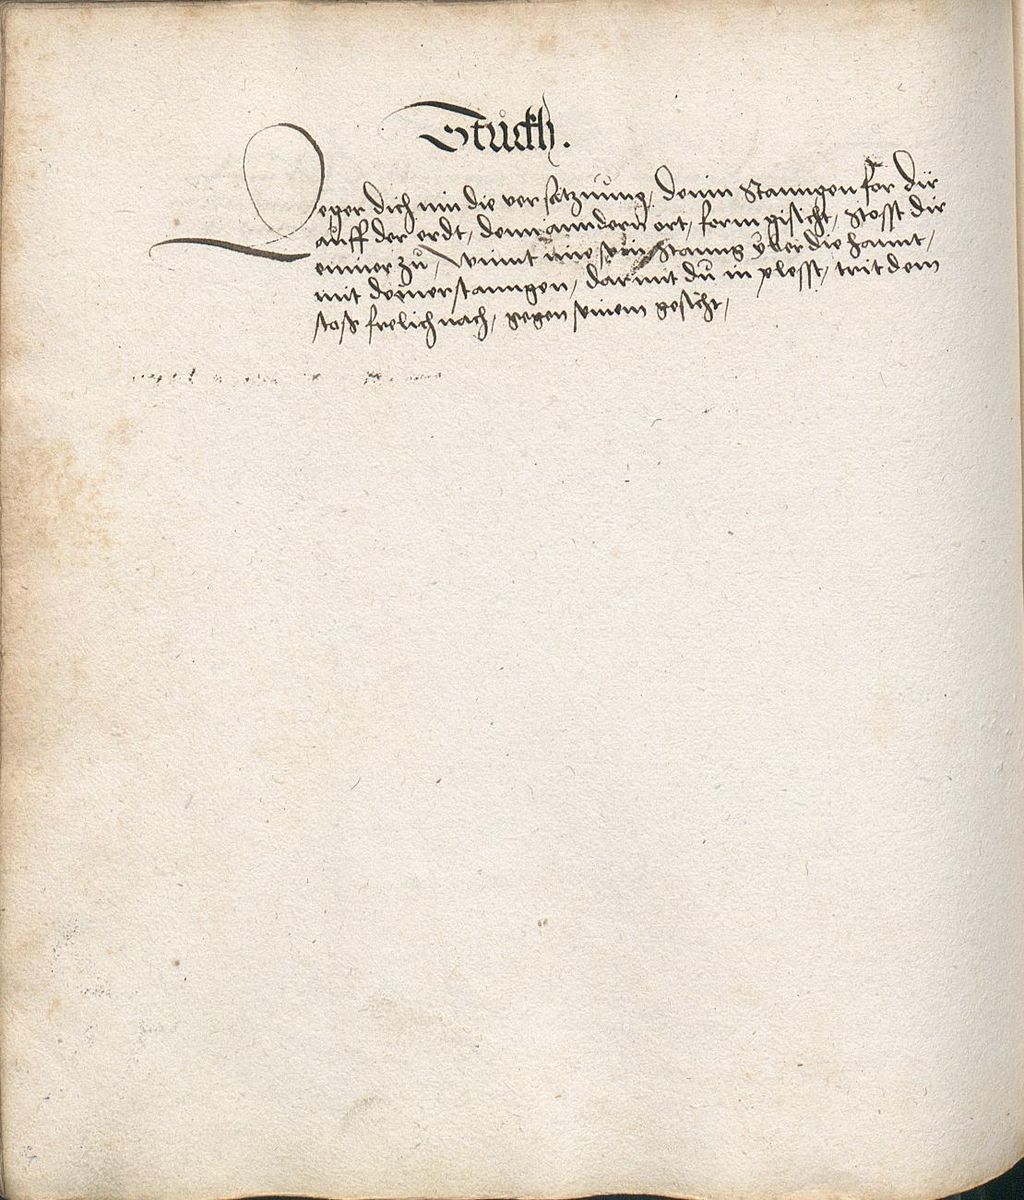 Stückh.
Leger dich inn die versatzŭng, deinn Stanngen for dir
aŭff der erdt, deinn anndern ort, ferm gesicht, Stosst dir
einner zŭ, nimt sein Stanng yber die hannt,
mit deiner stanngen, darmit dŭ in plesst, trit dem
stoss frelich nach, gegen seinem gesicht,